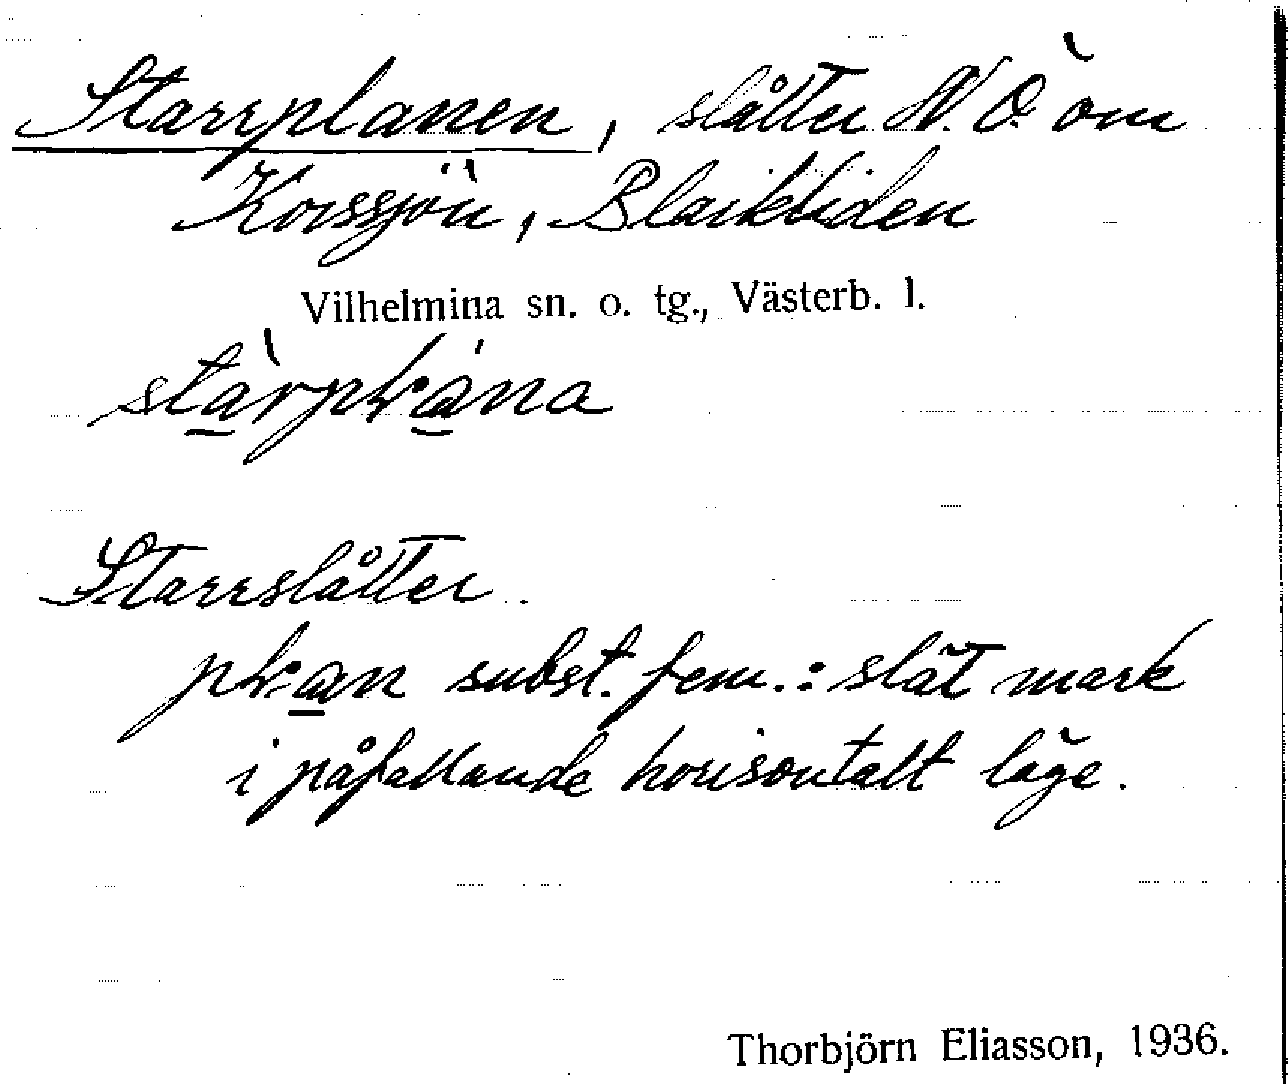 Starrplanen, slåtter N.O. om
Korssjön, Blaikliden
Vilhelmina sn. o. tg., Västerb. l.
Starrslåtter.
subst. fem.: slät mark
i påfallande horisontalt läge.
Thorbjörn Eliasson, 1936.